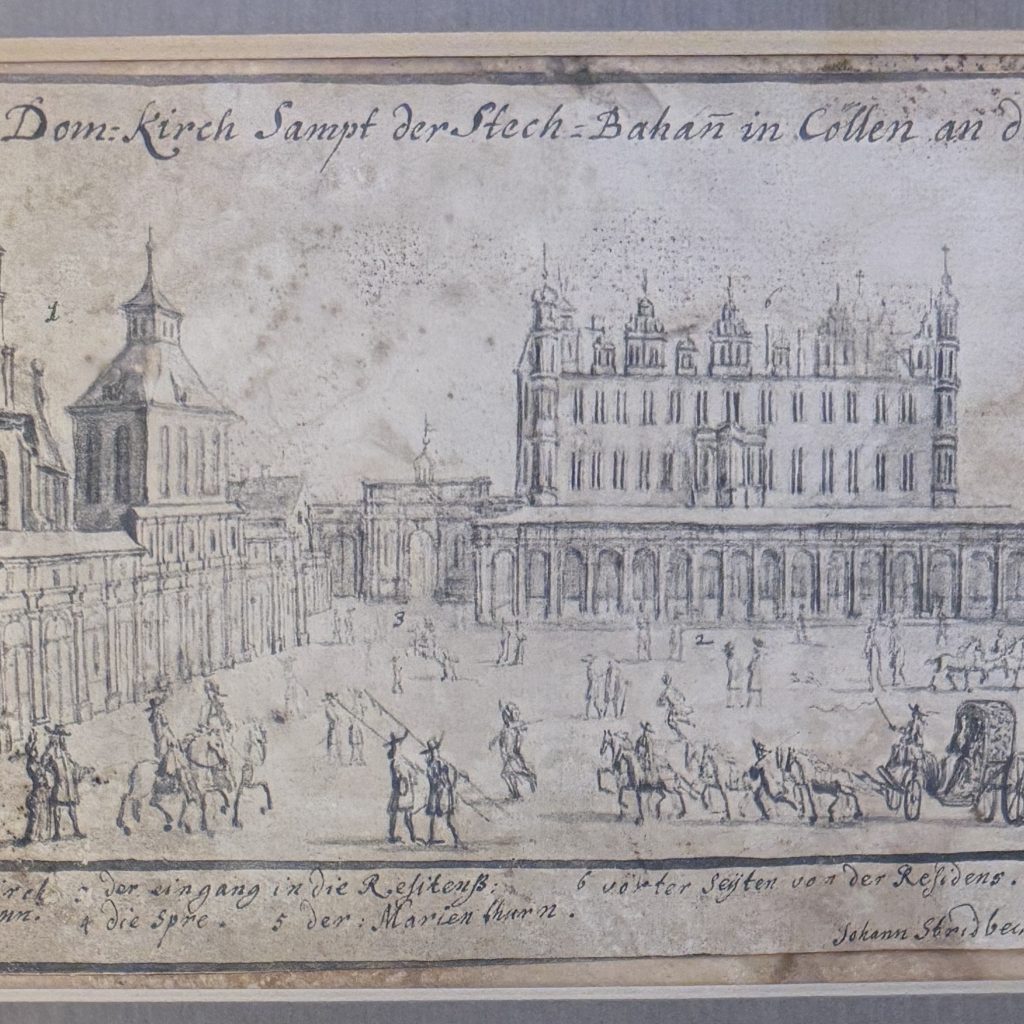 Dom=Kirch Sampt der Stech=Bahan̄ in Cöllen an d
1
6
3
2
irch 3 der eingang in die Resitenß: 6 vorter Seÿten von der Residens.
nn. 4 die Spre. 5 der: Marien thurn.
Johann Stridbec